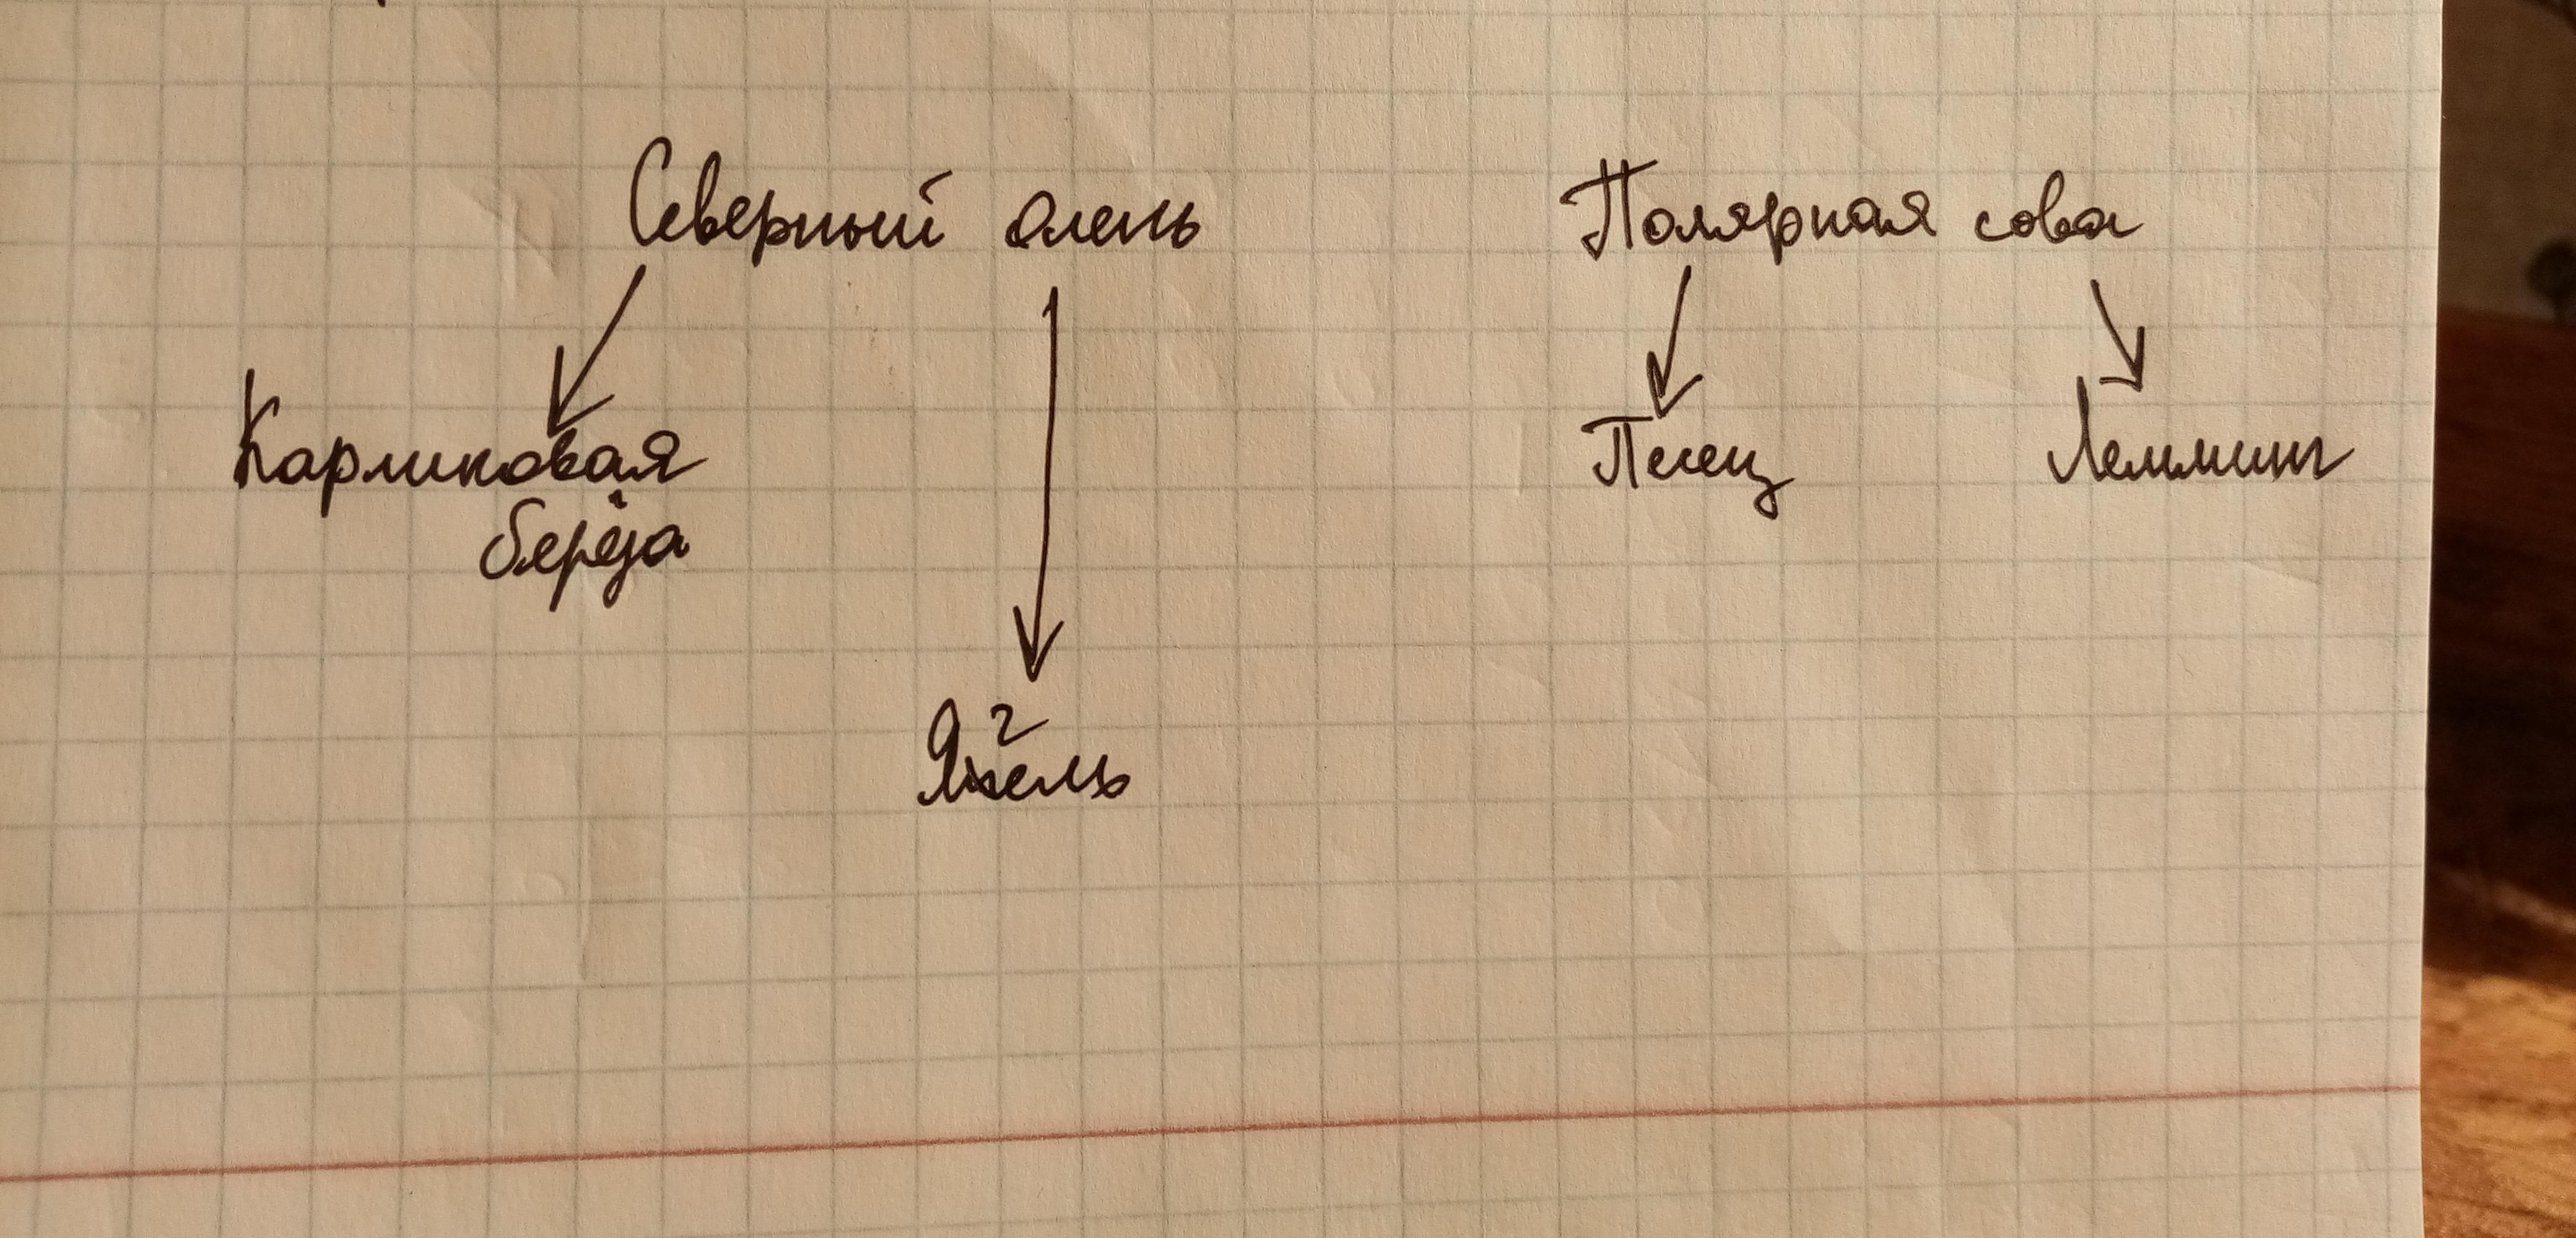 Северный олень
Полярная сова
Карликовая
берёза
Песец
Лемминг
Ягель